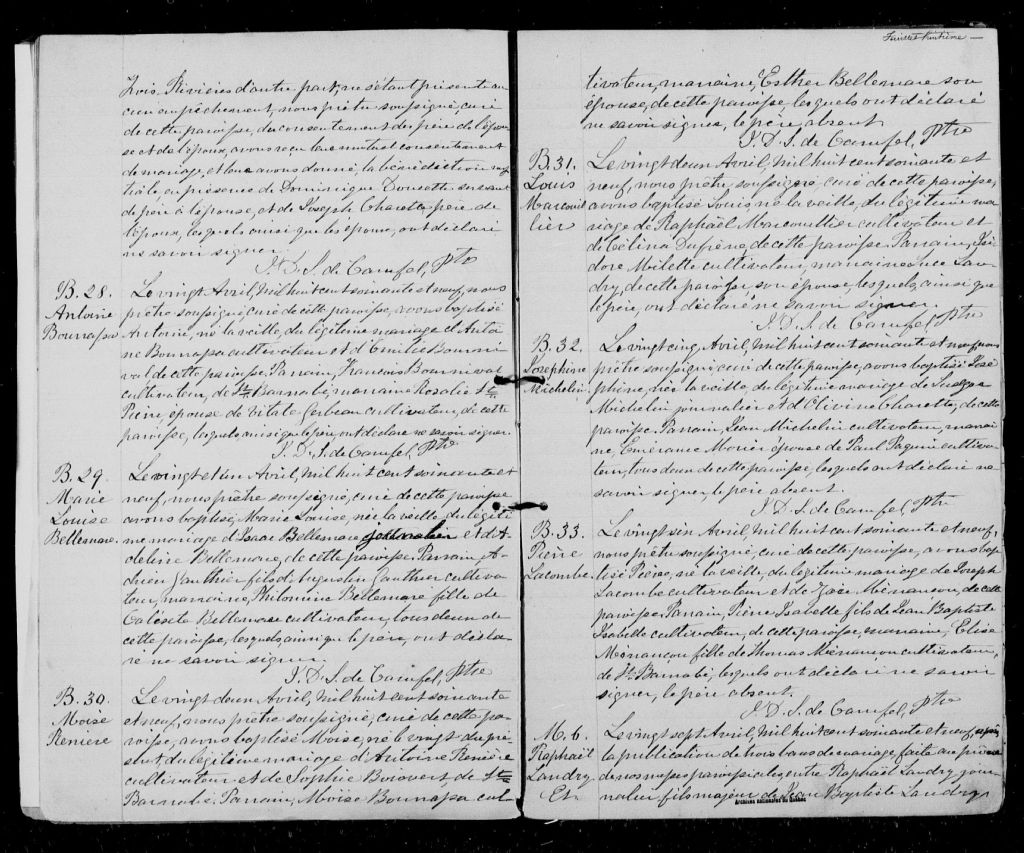 Trois Rivières d'autre part, ne s'étant présenté au
cun empêchement, nous prêtre soussigné, curé
de cette paroisse, du consentement des père de l'épou
se et de l'époux, avons reçu leur mutuel consentement
de mariage, et leur avons donné, la bénédiction nup
tiale en présence de Dominique Doucette servant
de père à l'épouse, et de Joseph Charette père de
l'époux, lesquels ainsi que les époux, ont déclaré
ne savoir signer.
J. D. S. de Camfel, Ptre
B. 28.
Antoine
Bournassa
Le vingt Avril, mil huit cent soixante et neuf, nous
prêtre soussigné curé de cette paroisse, avons baptisé
Antoine, né la veille, du légitime mariage d'Antoi
ne Bournassa cultivateur et d'Emilie Bourni
val de cette paroisse. Parrain, François Bournival
cultivateur, de St. Barnabé, marraine Rosalie St.
Pierre, épouse de Vitale Gerbeau cultivateur, de cette
paroisse, lesquels ainsi que le père, ont déclaré ne savoir signer.
J. D. S. de Camfel, Ptre
B. 29
Marie
Louise
Bellemare.
Le vingt et un Avril, mil huit cent soixante et
neuf, nous prêtre soussigné, curé de cette paroisse
avons baptisé, Marie Louise, née la veille, du légiti
me mariage d'Isaac Bellemare journalier et d'A
deline Bellemare, de cette paroisse. Parrain, A-
drien Gauthier fils d'Augustin Gauthier cultiva-
teur, marraine, Philomine Bellemare fille de
Calixte Bellemare cultivateur, tous deux de
cette paroisse, lesquels ainsi que le père, ont décla-
ré ne savoir signer.
J. D. S. de Camfel, Ptre
B. 30.
Moïse
Renière
Le vingt deux Avril, mil huit cent soixante
et neuf, nous prêtre soussigné, curé de cette pa-
roisse, avons baptisé Moïse, né le vingt du pré-
sent, du légitime mariage d'Antoine Renière
cultivateur et de Sophie Boisvert, de St.
Barnabé. Parrain, Moïse Bournassa cul-
Feuillet huitième
tivateur, marraine, Esther Bellemare son
épouse, de cette paroisse, lesquels ont déclaré
ne savoir signer, le père absent.
J. D. S. de Camfel, Ptre
B. 31.
Louis
Marcouil
lier
Le vingt deux Avril, mil huit cent soixante et
neuf, nous prêtre, soussigné, curé de cette paroisse,
avons baptisé Louis né la veille, du légitime ma
riage de Raphaël Marcouillier cultivateur et
de Célina Dufrène, de cette paroisse. Parrain, Isi
dore Milette cultivateur, marraine Lan-
dry, de cette paroisse son épouse, lesquels, ainsi que
le père, ont déclaré ne savoir signer.
J. D. S. de Camfel, Ptre
B. 32.
Josephine
Michelin
Le vingt cinq Avril, mil huit cent soixante et neuf, nous
prêtre soussigné curé de cette paroisse, avons baptisé José
phine, née la veille du légitime mariage de Joseph
Michelin journalier et d'Olivine Charette, de cette
paroisse. Parrain, Jean Michelin cultivateur, marrai
ne, Emérance épouse de Paul Paquin cultiva-
teur, tous deux de cette paroisse, lesquels ont déclaré ne
savoir signer, le père absent.
J. D. S. de Camfel, Ptre
B. 33.
Pierre
Lacombe.
Le vingt six Avril, mil huit cent soixante et neuf,
nous prêtre soussigné, curé de cette paroisse, avons bap
tisé Pierre, né la veille, du légitime mariage de Joseph
Lacombe cultivateur et de Zoée Ménançon, de cette
paroisse. Parrain, Pierre Isabelle fils de Jean Baptiste
Isabelle cultivateur, de cette paroisse, marraine, Elise
Ménançon fille de Thomas Ménançon cultivateur,
de St. Barnabé, lesquels ont déclaré ne savoir
signer, le père absent.
J. D. S. de Camfel, Ptre
M. 6.
Raphaël
Landry
Et
Le vingt sept Avril, mil huit cent soixante et neuf, après
la publication de trois bans de mariage, faite au prône
de nos messes paroissiales entre Raphaël Landry jour-
nalier, fils majeur de Jean Baptiste Landry
Archives nationales du Québec